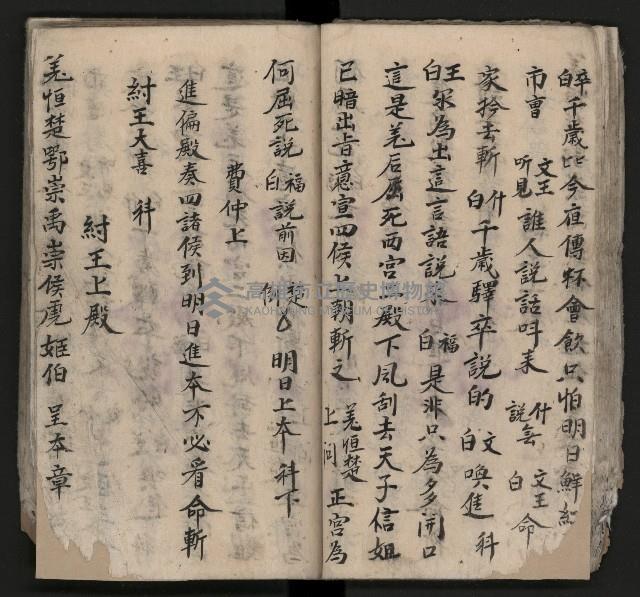 卒白千歲呀今夜傳杯會飲只怕明日鮮紅
市曹 文王听見誰人說話呌來 什說無白 文王命
家拎去斬 什白千歲驛卒說的 文白喚進 科
王白尔為出這言語說來 福白是非只為多開口
這是羗后屈死西宮二殿下風刮去天子信妲
已暗出旨意宣四侯上朝斬之 羗恒楚上问 正宮為
何屈死說 福白說前因 明日上本 科下
費仲上
進偏殿奏四諸侯到明日進本不必看命斬
紂王大喜 科
紂王上殿
羗恒楚鄂崇禹崇侯虎姬伯 呈本章
高雄市立歷史博物館
KAOHSIUNG MUSEUM OF HISTORY